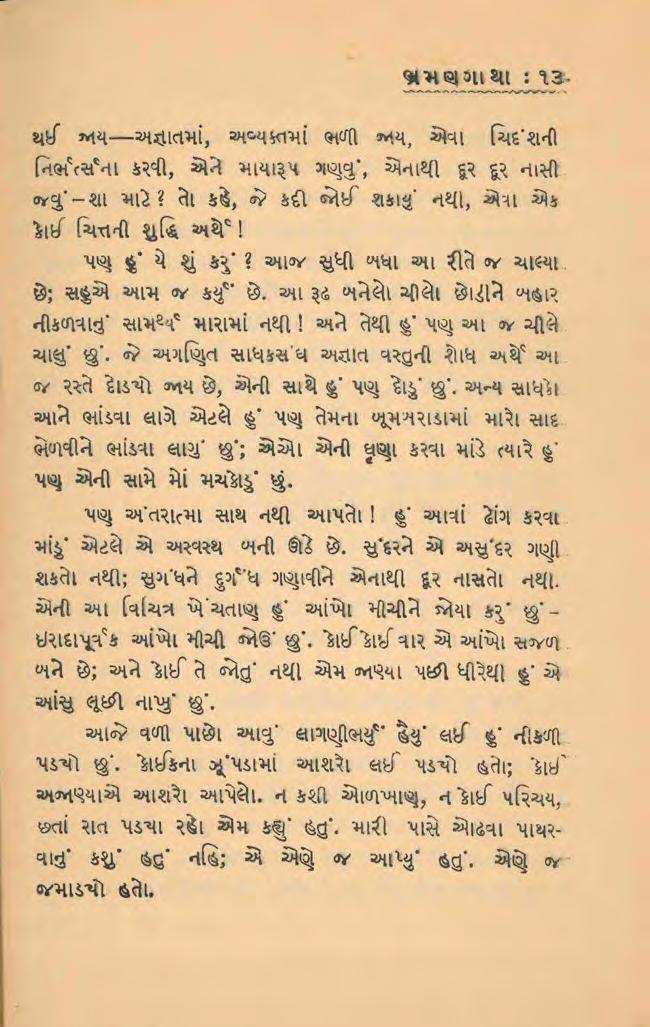 ભ્રમણગાથા : ૧૩
થઈ જાય—અજ્ઞાતમાં, અવ્યક્તમાં ભળી જાય, એવા ચિદંશની
નિર્ભર્ત્સના કરવી, એને માયારૂપ ગણવું, એનાથી દૂર દૂર નાસી
જવું – શા માટે ? તો કહે, જે કદી જોઈ શકાયું નથી, એવા એક
કોઈ ચિત્તની શુદ્ધિ અર્થે !
પણ હું યે શું કરું ? આજ સુધી બધા આ રીતે જ ચાલ્યા
છે; સહુએ આમ જ કર્યું છે. આ રૂઢ બનેલો ચીલો છોડીને બહાર
નીકળવાનું સામર્થ્ય મારામાં નથી ! અને તેથી હું પણ આ જ ચીલે
ચાલું છું. જે અગણિત સાધકસંઘ અજ્ઞાત વસ્તુની શોધ અર્થે આ
જ રસ્તે દોડચો જાય છે, એની સાથે હું પણ દોડું છું. અન્ય સાધકો
આને ભાંડવા લાગે એટલે હું પણ તેમના બૂમબરાડામાં મારો સાદ
ભેળવીને ભાંડવા લાગું છું; એઓ એની ઘૃણા કરવા માંડે ત્યારે હું
પણ એની સામે મોં મચકોડું છું.
પણ અંતરાત્મા સાથ નથી આપતો ! હું આવાં ઢોંગ કરવા
માંડું એટલે એ અસ્વસ્થ બની ઊઠે છે. સુંદરને એ અસુંદર ગણી
શકતો નથી; સુગંધને દુર્ગંધ ગણાવીને એનાથી દૂર નાસતો નથી.
એની આ વિચિત્ર ખેંચતાણ હું આંખો મીચીને જોયા કરું છું –
ઇરાદાપૂર્વક આંખો મીચી જોઉં છું. કોઈ કોઈ વાર એ આંખો સજળ
બને છે; અને કોઈ તે જોતું નથી એમ જાણ્યા પછી ધીરેથી હું એ
આંસુ લૂછી નાખું છું.
આજે વળી પાછો આવું લાગણીભર્યું હૈયું લઈ હું નીકળી
પડચો છું. કોઈકના ઝૂંપડામાં આશરો લઈ પડચો હતો; કોઈ
અજાણ્યાએ આશરો આપેલો. ન કશી ઓળખાણ, ન કોઈ પરિચય,
છતાં રાત પડચા રહો એમ કહ્યું હતું. મારી પાસે ઓઢવા પાથર-
વાનું કશું હતું નહિ; એ એણે જ આપ્યું હતું. એણે જ
જમાડચો હતો.